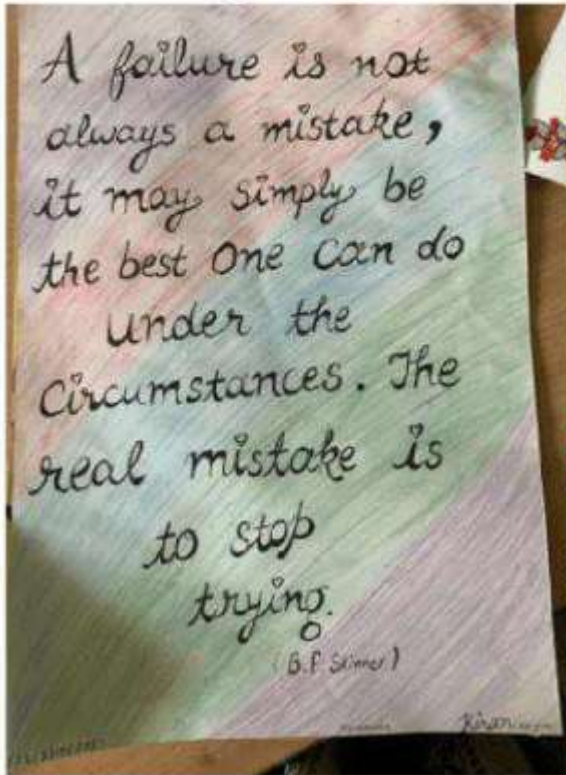 A failure is not
always a mistake,
it may simply be
the best One Can do
under the
Circumstances. The
real mistake is
to stop
trying.
(B.F Skinner)
Kiran